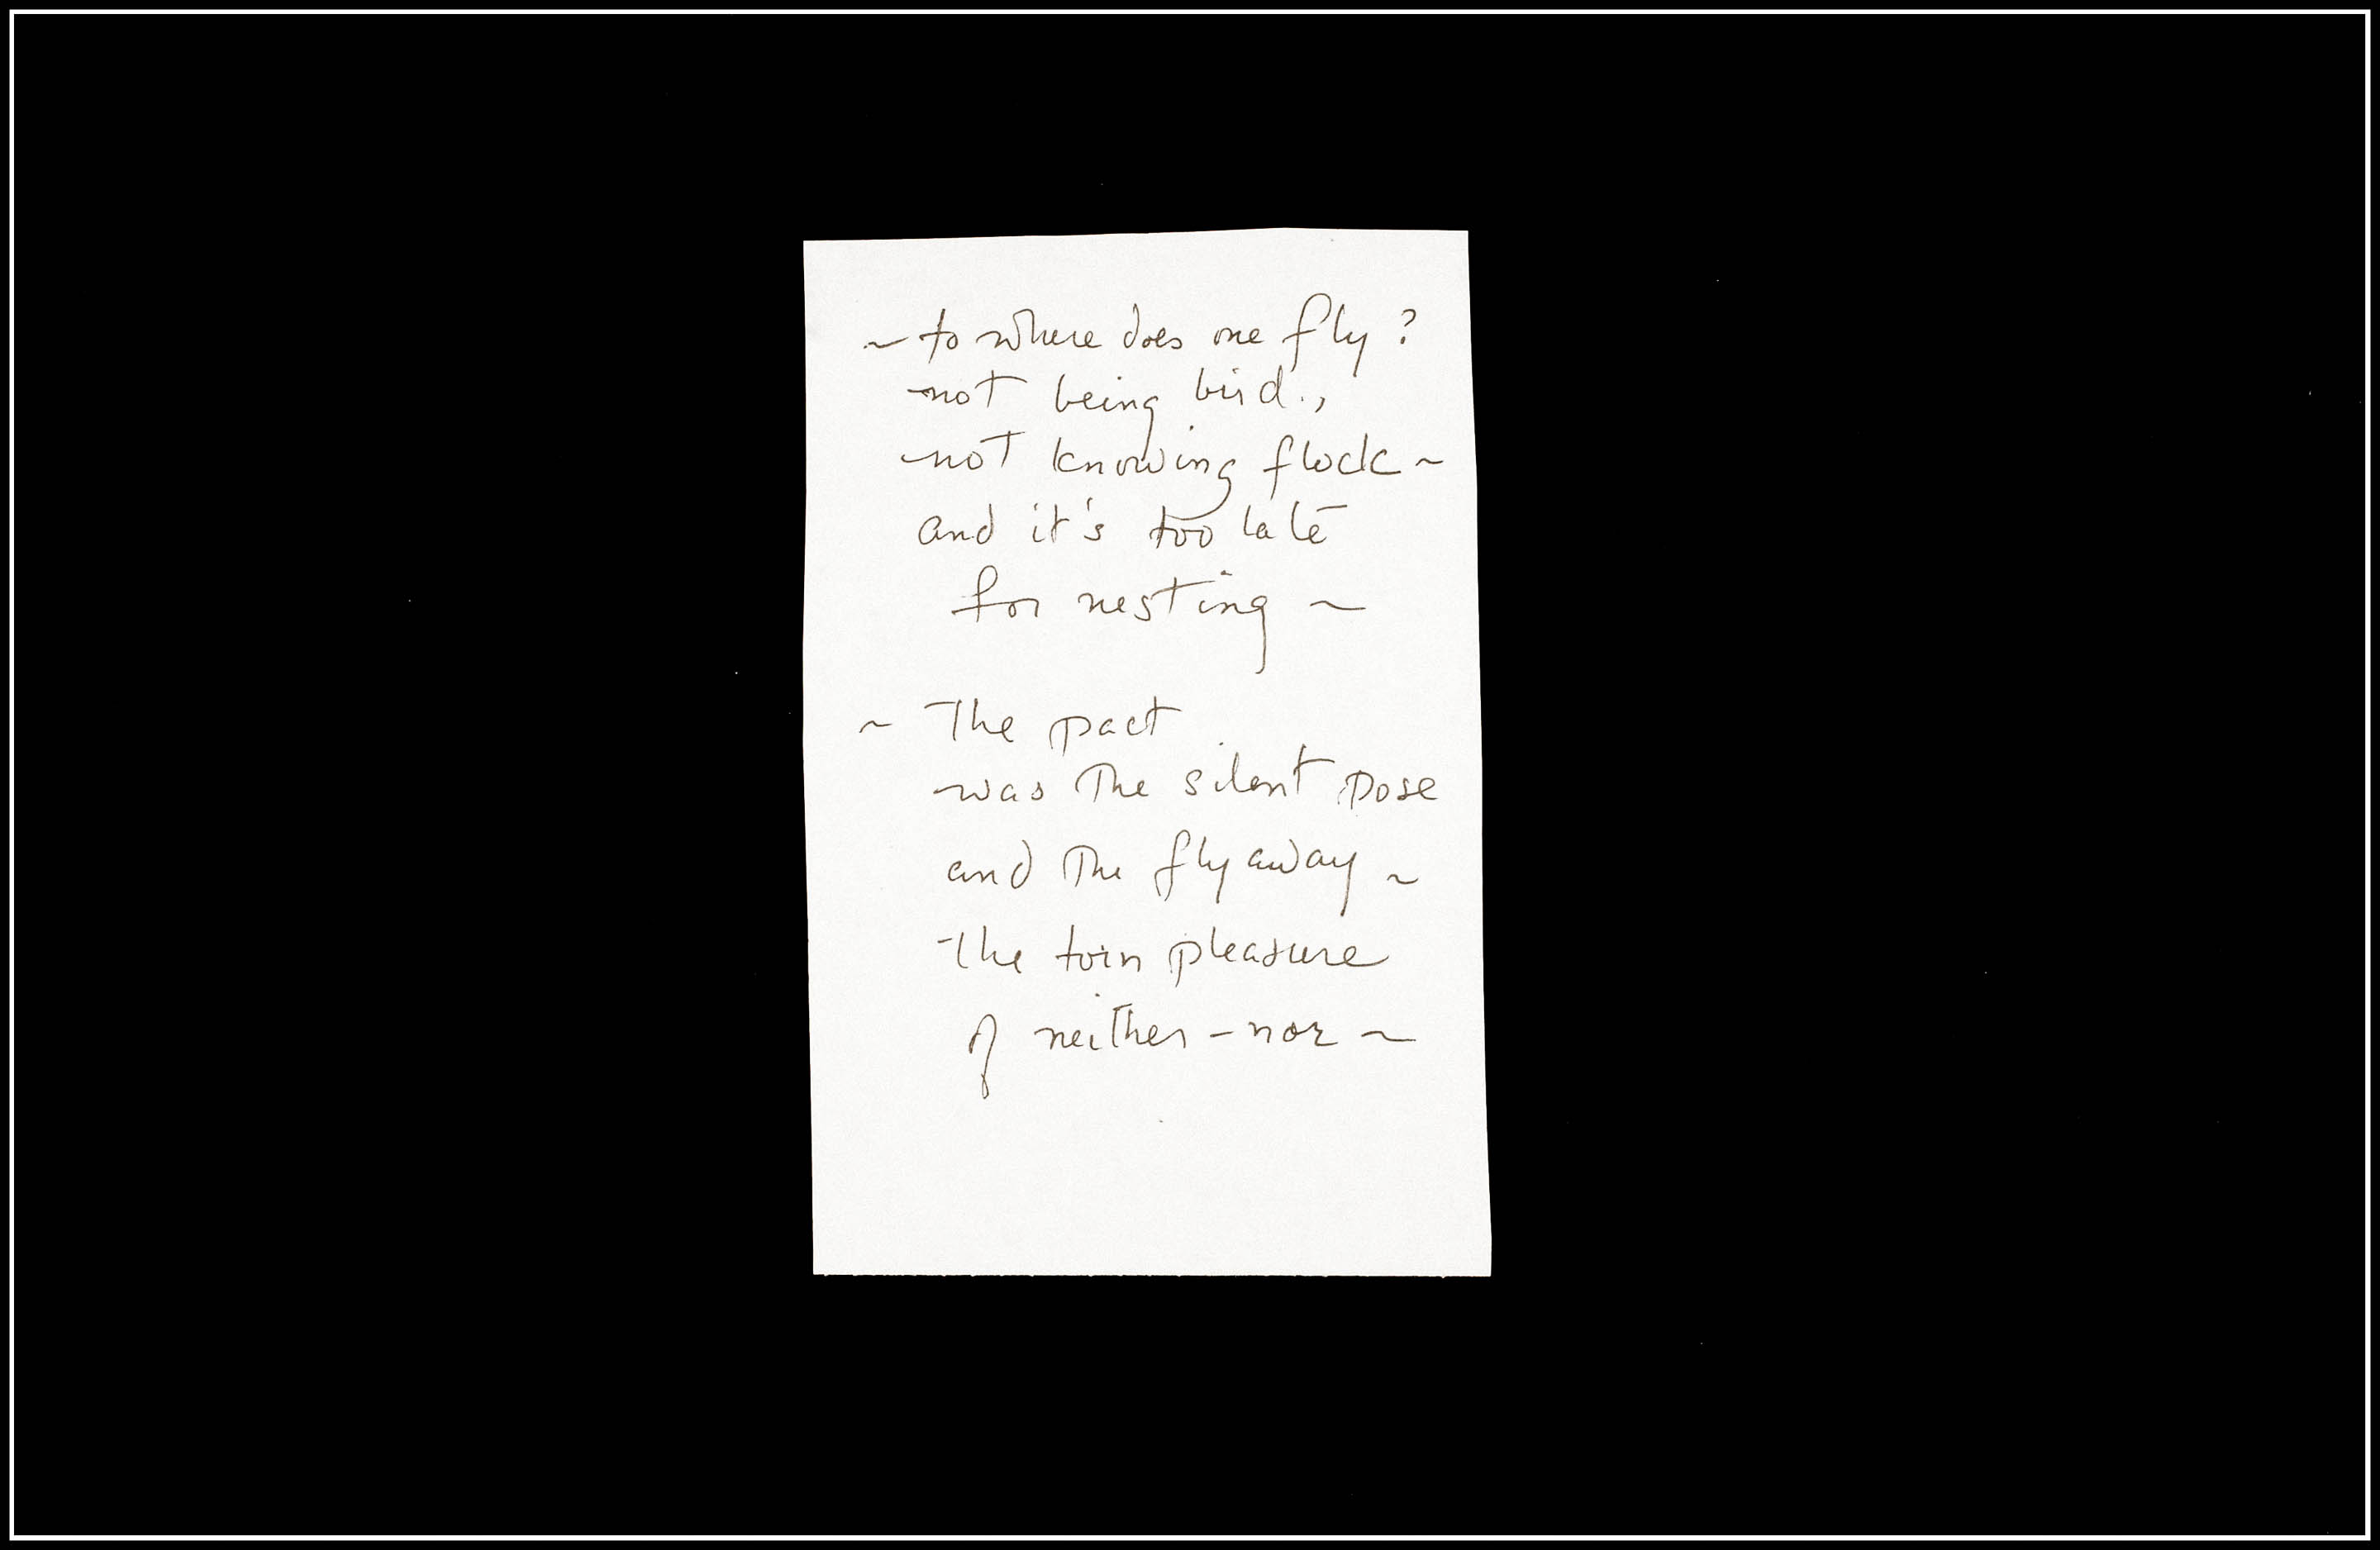 ~ to where does one fly?
not being bird.,
not knowing flock ~
and it's too late
for nesting ~
~ The pact
was the silent pose
and the fly away ~
The twin pleasure
of neither - nor ~